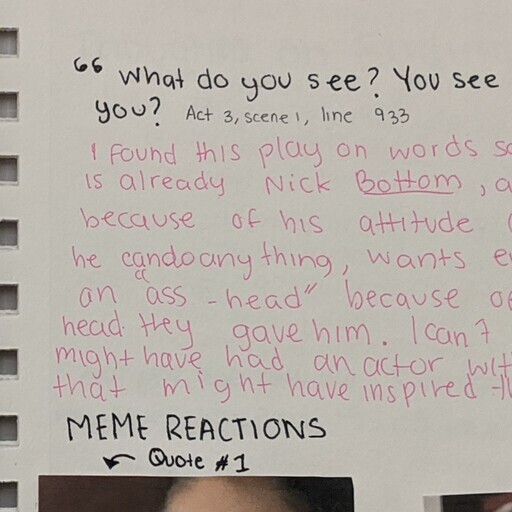 “ What do you see? You see
you? Act 3, scene 1, line 933
I found this play on words
is already Nick Bottom,
because of his attitude
he can do any thing, wants
an "ass-head" because
head they gave him. I can't
might have had an actor
that might have inspired
MEME REACTIONS
Quote #1